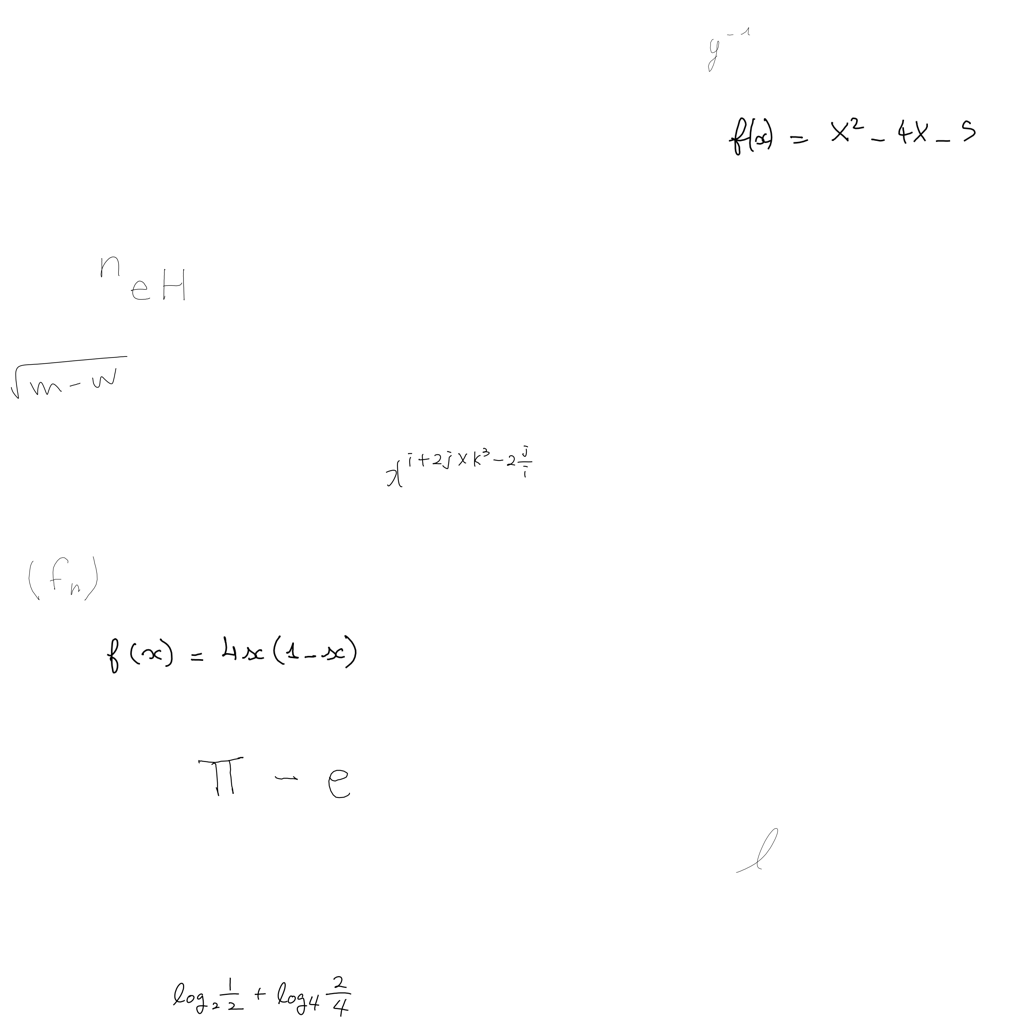 y^{-1}
f(x) = x^2 - 4x - 5
^n eH
\sqrt{m-w}
x^{i+2j \times k^3 - 2\frac{j}{i}}
(f_n)
f(x) = 4x(1-x)
π - e
l
log_2 \frac{1}{2} + log_4 \frac{2}{4}